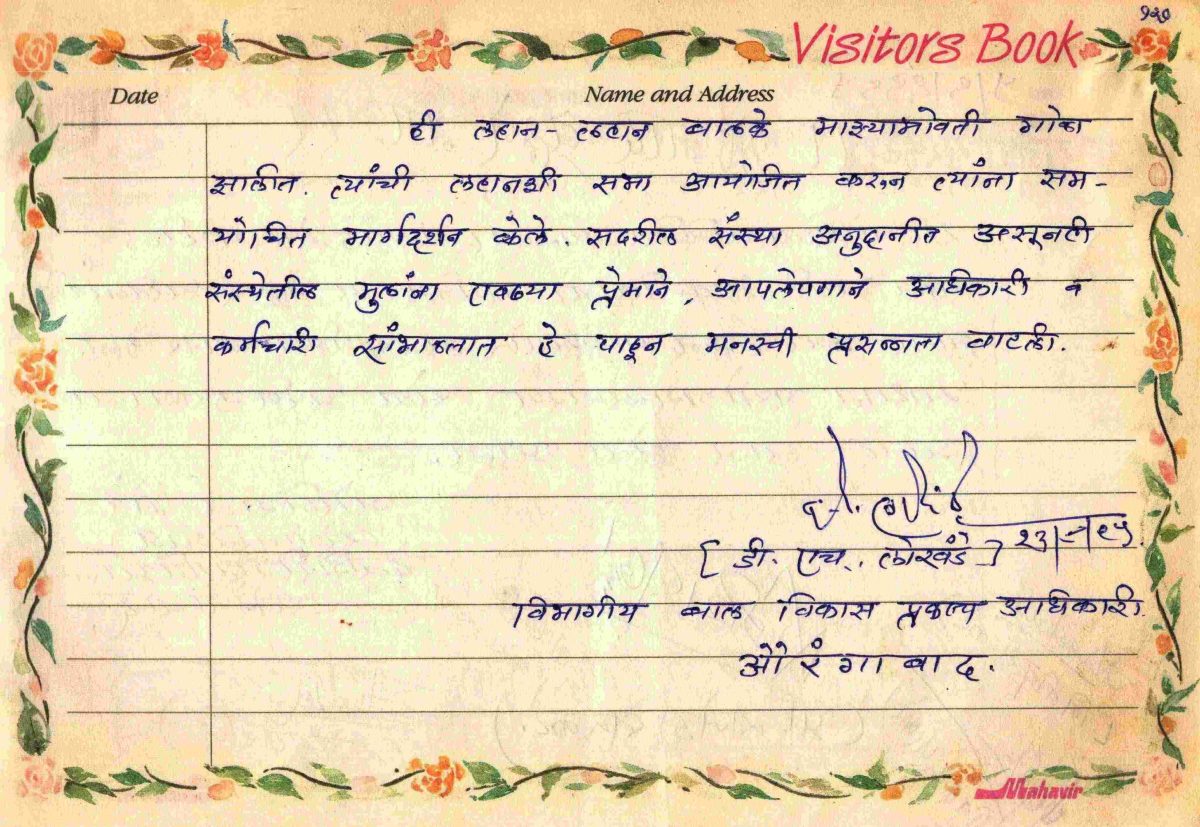 १२०
Visitors Book
Date Name and Address
ही लहान - लहान बालके माझ्याभोवती गोळा
झालीत. त्यांची लहानशी सभा आयोजित करून त्यांना सम-
योचित मार्गदर्शन केले. सदरील संस्था अनुदानीत असूनही
संस्थेतील मुलांना एवढ्या प्रेमाने, आपलेपणाने अधिकारी व
कर्मचारी सांभाळतात हे पाहून मनस्वी प्रसन्नता वाटली.
[ डी. एच. लोखंडे ]
विभागीय बाल विकास प्रकल्प अधिकारी.
औरंगाबाद.
Mahavir